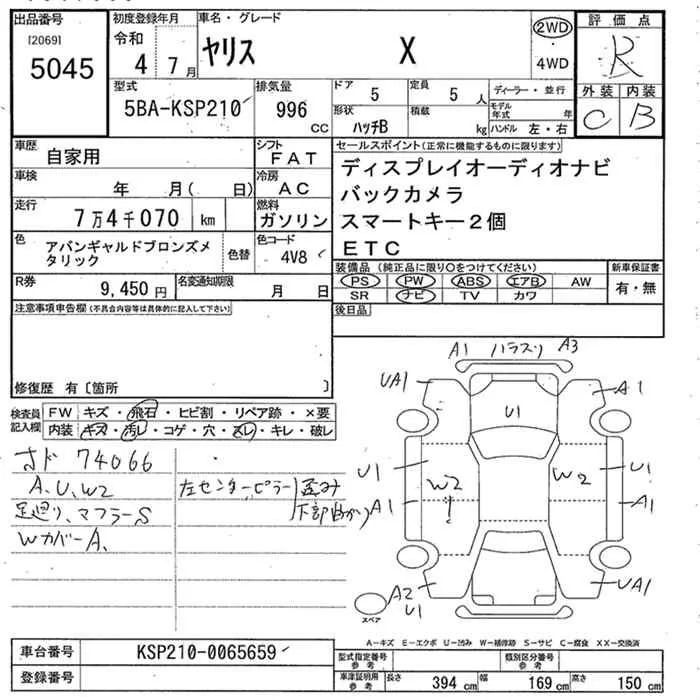 出品番号
[2069]
5045
初度登録年月
令和
4 7月
車名・グレード
ヤリス X
2WD
・
4WD
評価点
R
外装 内装
C B
型式
5BA-KSP210
排気量
996 cc
ドア 5
定員 5 人
形状 ハッチB
積載 kg
ディーラー・並行
モデル年式 年
ハンドル 左・右
車歴 自家用
シフト FAT
車検 年 月( 日)
冷房 AC
走行 7万4千070 km
燃料 ガソリン
色 アバンギャルドブロンズメタリック
色替
色コード 4V8
R券 9,450円
名変通知期限 月 日
セールスポイント(正常に機能するものに限ります)
ディスプレイオーディオナビ
バックカメラ
スマートキー2個
ETC
装備品(純正品に限り○をつけてください)
PS PW ABS エアB AW
SR ナビ TV カワ
新車保証書
有・無
後日品
注意事項申告欄(不具合内容等は具体的に記入して下さい)
修復歴 有〔箇所 〕
検査員記入欄
FW キズ・飛石・ヒビ割・リペア跡・×要
内装 キズ・汚レ・コゲ・穴・スレ・キレ・破レ
オド 74066
A、U、W2
足廻り、マフラーS
Wカバー A、
左センターピラー歪み
下部曲がり
A1 ハラスリ A3
UA1 A1
U1
U1 W2 W2 U1
A1 A1
A2 UA1
U1
スペア
A-キズ E-エクボ U-凹み W-補修跡 S-サビ C-腐食 XX-交換済
車台番号 KSP210-0065659
登録番号
型式指定番号 参考
類別区分番号 参考
車庫証明用 参考
長さ 394 cm 幅 169 cm 高さ 150 cm